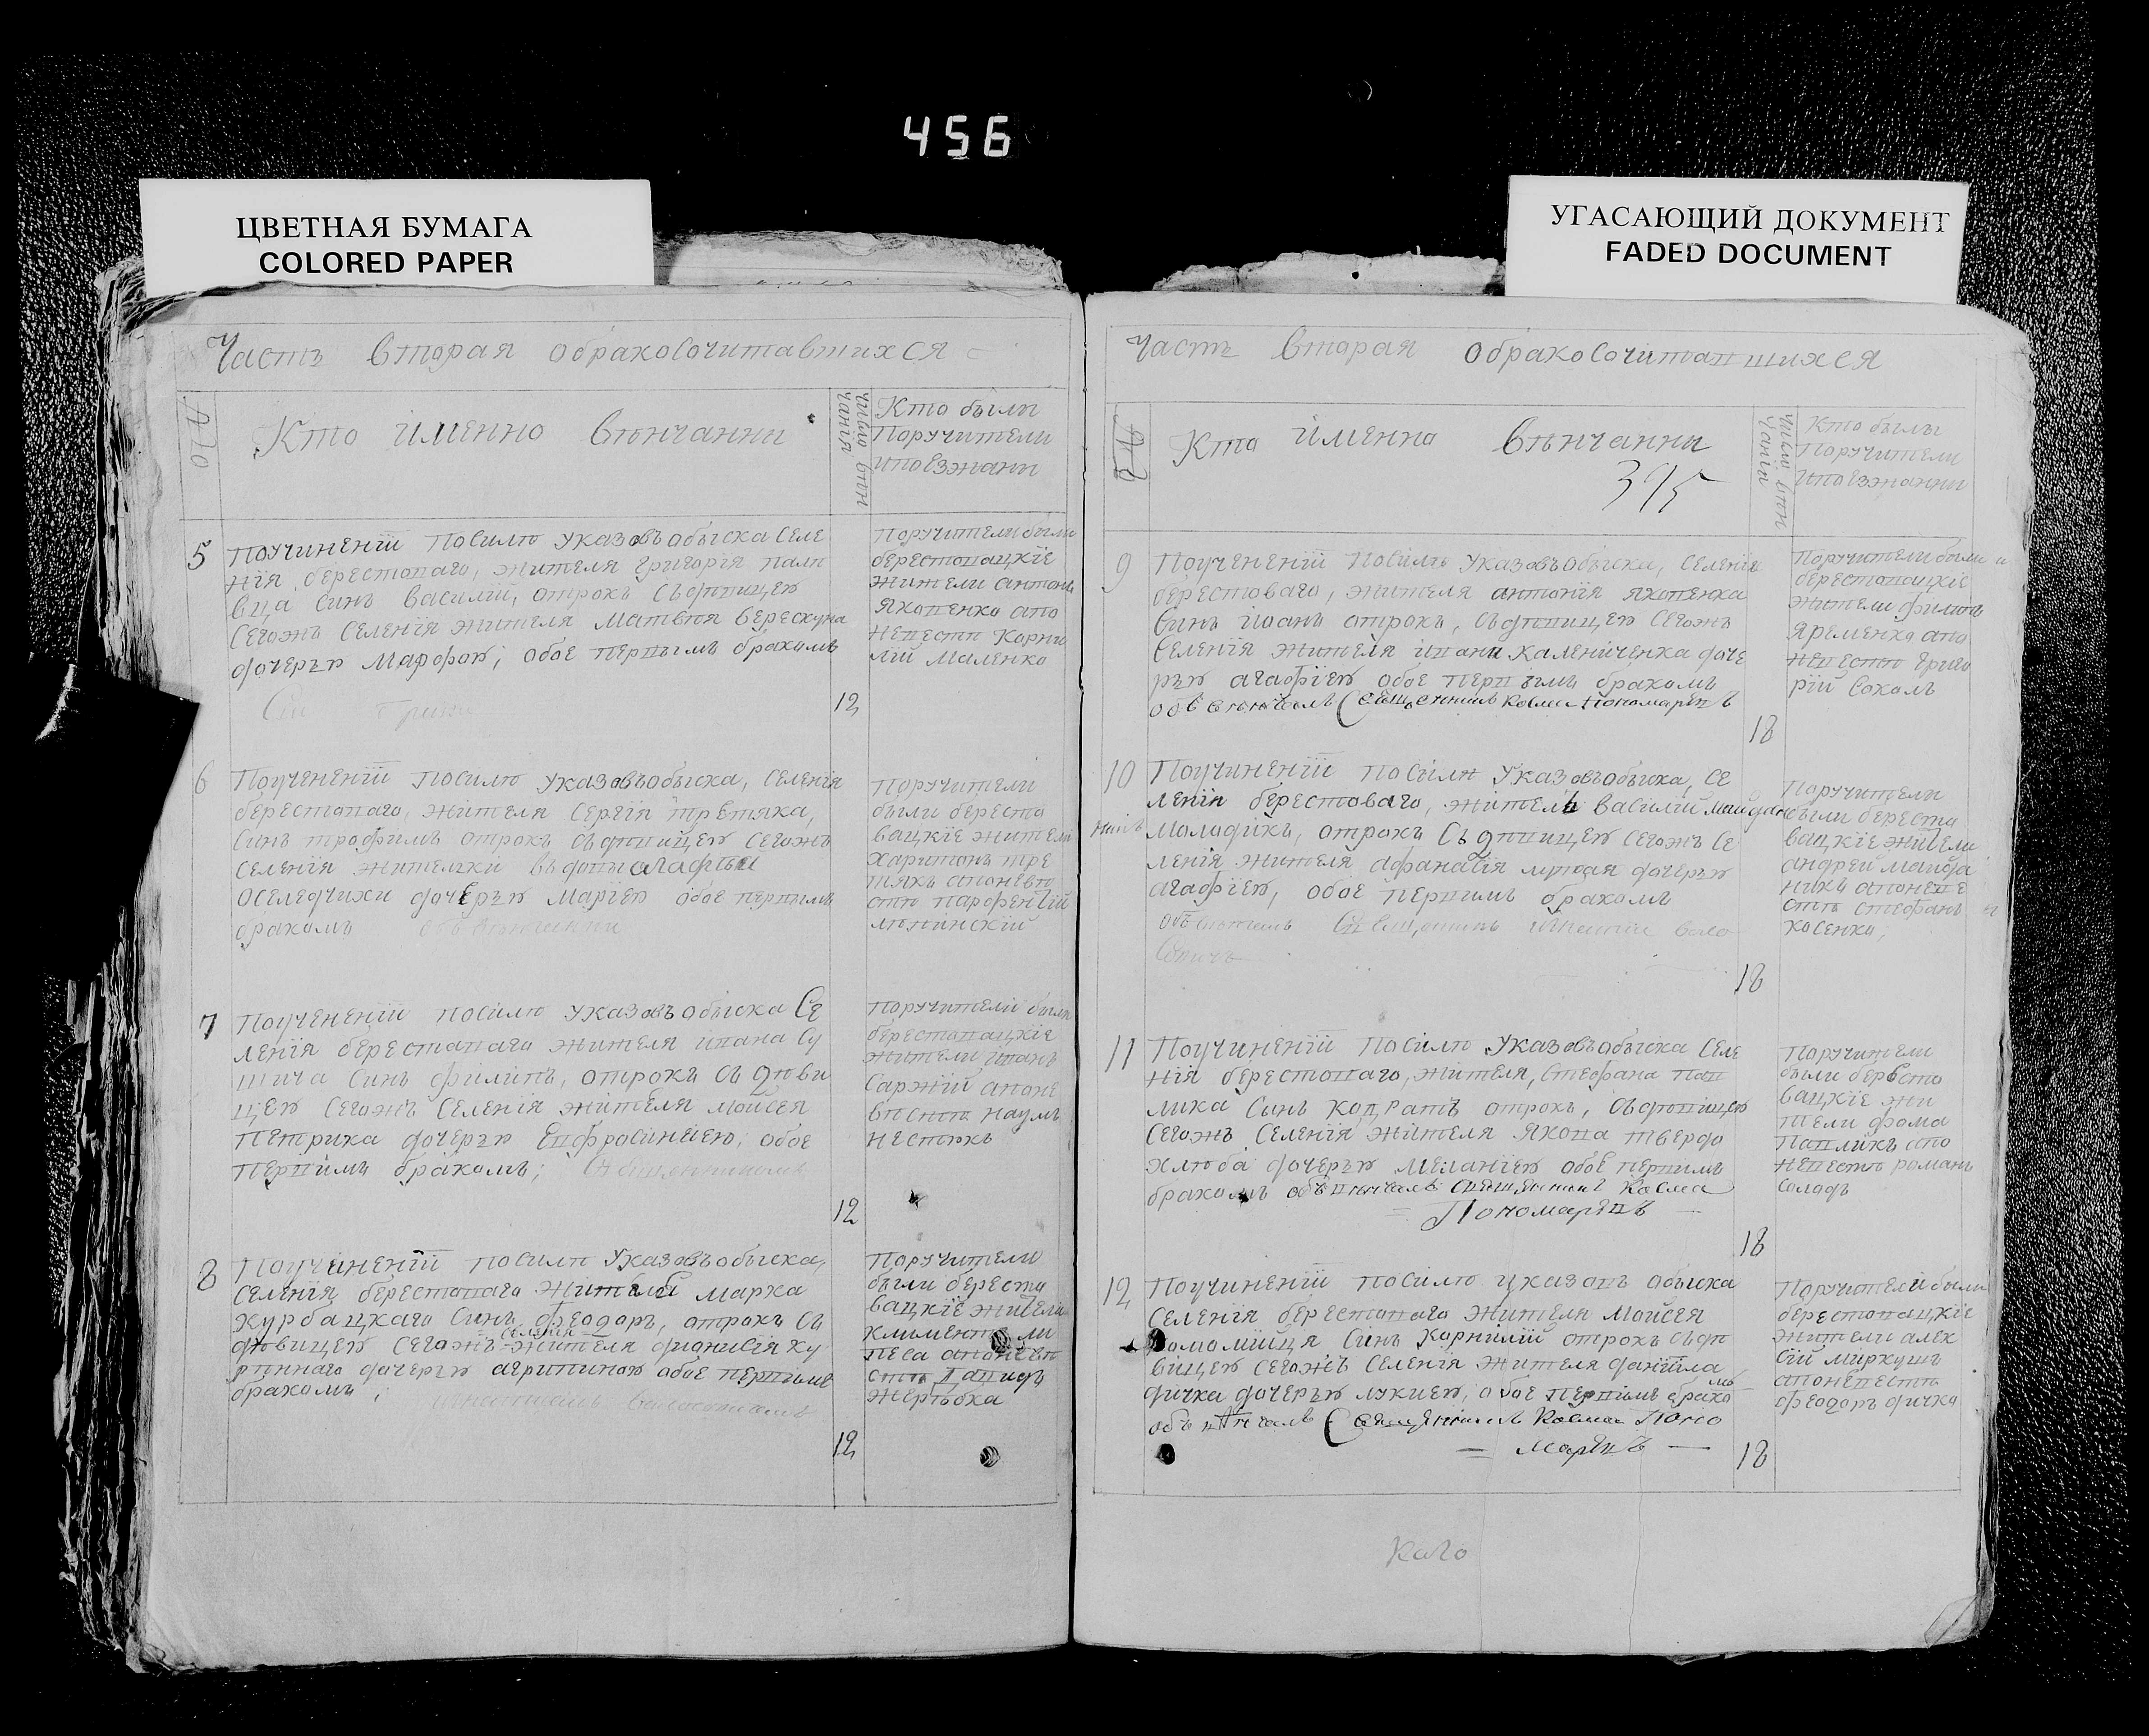 456
ЦВЕТНАЯ БУМАГА
COLORED PAPER
УГАСАЮЩИЙ ДОКУМЕНТ
FADED DOCUMENT
Часть вторая обракосочитавшихся
Кто именно венчанны
число вѣн
чанїя
Кто были
Поручители
ипоезжани
5
Поучиненїи посилѣ указовъ обыска селе
нїя берестоваго, жителя григорїя
вца синъ василїй, отрокъ съ дѣвицею
Сегожъ Селенїя жителя Матвѣя берескуна
дочерью Марфою, обое первымъ бракомъ
12
Поручители были
берестовацкїе
жители антонъ
Яковенко апо
невестѣ Корни
лїй Маленко
6
Поучененїи посилѣ указовъ обыска, селенїя
берестоваго, жителя сергїя третяка,
Синъ трофимъ отрокъ съ дѣвицею Сегожъ
селенїя жителки вдовы агафїи
оселедчихи дочерью Марїею обое первымъ
бракомъ обвѣнчанни
Поручители
были бересто
вацкїе жители
харитонъ тре
тякъ апоневѣ
стѣ парфентїй
7
Поучененїи посилѣ указовъ обыска Се
ленїя берестоваго жителя ивана Су
шича Синъ филипъ, отрокъ съ дѣви
цею Сегожъ Селенїя жителя моисея
Петрика дочерью Евфросинїею, обое
первимъ бракомъ;
12
Поручители были
берестовацкїе
жители иванъ
Саржїй апоне
вѣстѣ наумъ
нестюкъ
8
Поучиненїи посилѣ указовъ обыска,
селенїя берестоваго жителя марка
курбацкаго Синъ феодоръ, отрокъ съ
дѣвицею Сегожъ селенїя жителя дионисїя ку
рѣннаго дочерью агрипиною обое первымъ
бракомъ;
12
Поручители
были бересто
вацкїе жители
климентъ ли
песа апоневѣ
стѣ давидъ
жертовка
Часть вторая обракосочитавшихся
Кто именно вѣнчанны
395
Кто былы
Поручители
ипоезжанны
9
Поучененїи посилѣ указовъ обыска, селенїя
берестоваго, жителя антонїя яковенка
Синъ иоанъ отрокъ, съ дѣвицею Сегожъ
Селенїя жителя ивана каленїченка доче
рью агафїею обое первымъ бракомъ
обвѣнчалъ Священникъ Косма Пономаревъ
18
Поручители были
берестовацкїе
жители филипъ
Яременко апо
невестѣ григо
рїй Соколъ
10
Поучиненїи посилѣ указовъ обыска, се
ленїя берестоваго, житель василїй майдан
никъ
молодикъ, отрокъ съ дѣвицею сегожъ Се
ленїя жителя афанасїя дочерью
агафїею, обое первимъ бракомъ
18
Поручители
были бересто
вацкїе жители
андрей майда
никъ апоневе
стѣ стефанъ
косенко,
11
Поучиненїи посилѣ указовъ обыска селе
нїя берестоваго, жителя, стефана пав
лика Сынъ кодратъ отрокъ, съ дѣвицею
Сегожъ Селенїя жителя якова твердо
хлѣба дочерью меланїею обое первимъ
бракомъ обвѣнчалъ священникъ Косма
= Пономаревъ —
18
Поручители
были бересто
вацкїе жи
тели фома
Павликъ апо
невестѣ романъ
Солодъ
12
Поучиненїи посилѣ указовъ обыска
селенїя берестоваго жителя моисея
Синъ корнилїй отрокъ съ дѣ
вицею сегожъ селенїя жителя данїила
дичка дочерью лукиею, обое первимъ брако
мъ
обвѣнчалъ Священникъ Косма Поно
= маревъ —
18
Поручители были
берестовацкїе
жители алек
сїй миркушъ
апоневестѣ
феодоръ дичко
Кого